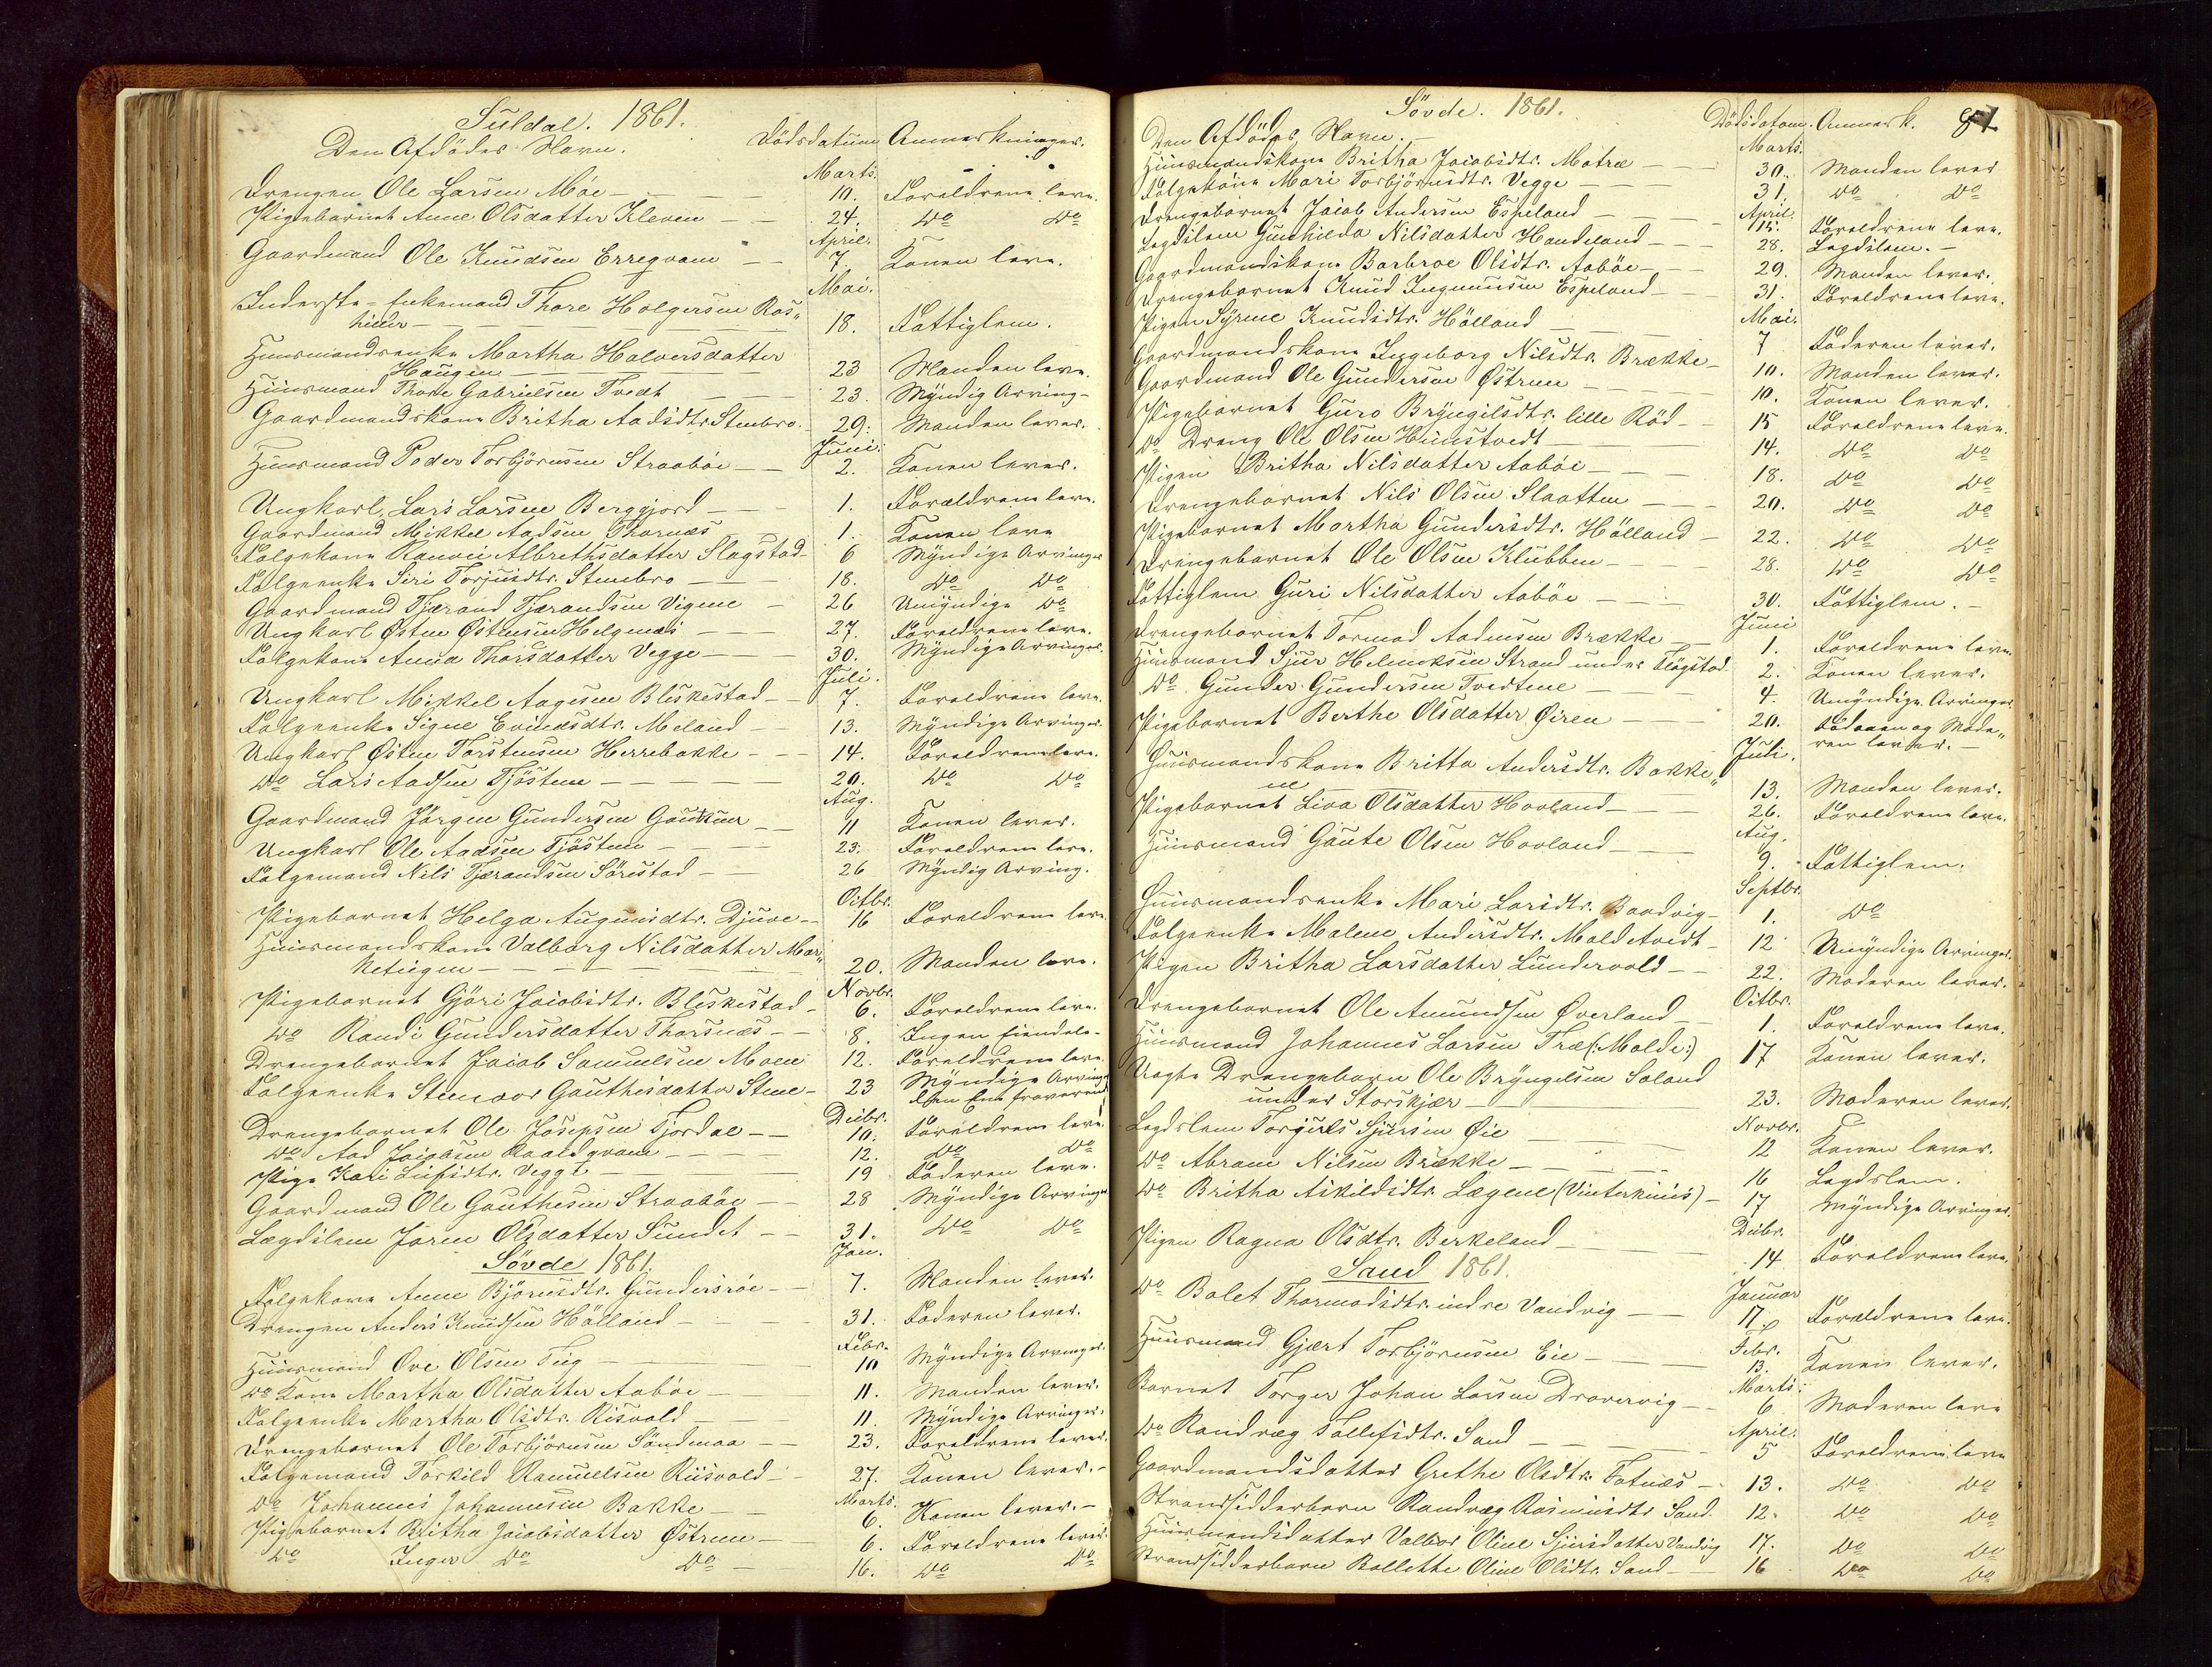 Suldal. 1861.
Den Afdödes Navn. Dödsdatum Anmærkninger.
Marts.
Drengen Ole Larsen Möe 10. Forældrene leve.
Pigebarnet Anne Olsdatter Kleven 24. Do Do
April.
Gaardmand Ole Knudsen Erreqvam 7. Konen leve.
Mai.
Inderste-Enkemand Thore Holgersen Ros„
hider 18. Fattiglem.
Huusmandsenke Martha Halversdatter
Haugen 23 Manden leve.
Huusmand Thore Gabrielsen Tvedt 23. Myndig Arving
Gaardmandskone Britha Aadsdtr. Stenbro. 29. Manden lever.
Juni.
Huusmand Peder Torbjörnsen Straaböe 2. Konen lever.
Ungkarl Lars Larsen Berggjord 1. Forældrene leve.
Gaardmand Mikkel Aadsen Thornæs 1. Konen leve
Folgekone Ranvei Albrethsdatter Slagstad 6 Myndige Arvinger
Folgeenke Siri Torjusdtr. Stenbro 18. Do Do
Gaardmand Tjærand Tjærandsen Vigene 26 Umyndige Do
Ungkarl Østen Østensen Helgenæs 27. Forældrene leve.
Folgekone Anna Thorsdatter Vegge 30. Myndige Arvinger.
Juli.
Ungkarl Mikkel Aagesen Bleskestad 7. Forældrene leve.
Folgeenke Signe Eveensdtr. Meland 13. Myndige Arvinger.
Ungkarl Østen Torstensen Herrebakke 14. Forældrene leve.
Do Lars Aadsen Tjösten 20. Do Do
Aug.
Gaardmand Jörgen Gundersen Gaukener 11 Konen lever.
Ungkarl Ole Aadsen Tjösten 23. Forældrene leve.
Folgemand Nils Tjærandsen Sörestad 26 Myndig Arving.
Octbr.
Pigebarnet Helga Augunsdtr. Djuve 16 Forældrene leve.
Huusmandskone Valborg Nilsdatter Mar„
keteigen 20. Manden leve.
Novbr.
Pigebarnet Gjöri Jacobsdtr. Bleskestad 6. Forældrene leve.
Do Randi Gundersdatter Thorsnæs 8. Ingen Eiendele
Drengebarnet Jacob Samuelsen Moen 12. Forældrene leve.
Folgeenke Stenvor Gauthesdatter Stene 23 Myndige Arvinger
den Ene fraværende
Decbr.
Drengebarnet Ole Josepsen Fjordal 10. Forældrene leve.
Do Aad Jacobsen Raaldqvam 12. Do Do
Pige Kari Leifsdtr. Vegge 19 Faderen leve.
Gaardmand Ole Gauthesen Straaböe 28 Myndige Arvinger
Lægdslem Joren Olsdatter Sundet 31. Do Do
Søvde 1861.
Jan.
Folgekone Anne Björnsdtr. Gundersröe 7. Manden lever.
Drengen Anders Knudsen Hölland 31. Faderen lever.
Febr.
Huusmand Ove Olsen Teig 10 Myndige Arvinger.
Do Kone Martha Olsdatter Aaböe 11. Manden lever.
Folgeenke Martha Olsdtr. Risvold 11. Myndige Arvinger.
Drengebarnet Ole Torbjörnsen Söndenaa 23. Forældrene lever.
Folgemand Torkild Ramuelsen Riisvold 27. Konen lever.
Marts.
Do Johannes Johannesen Bakke 6. Konen lever.
Pigebarnet Britha Jacobsdatter Østrem 6. Forældrene lever.
Do Inger Do Do 16. Do Do
Søvde. 1861. 81
Den Afdödes Navn. Dödsdatum. Anmærk.
Marts.
Huusmandskone Britha Jacobsdtr. Motræ 30. Manden lever
Folgekone Mari Torbjörnsdtr. Vegge 31. Do Do
April.
Drengebarnet Jacob Andersen Espeland 15. Forældrene leve.
Legdslem Gunhilda Nilsdatter Handeland 28. Legdslem.
Gaardmandskone Barbroe Olsdtr. Aaböe 29. Manden lever.
Drengebarnet Knud Ingemunsen Espeland 31. Forældrene leve.
Mai.
Pigen Syrine Knudsdtr. Hölland 7 Faderen lever.
Gaardmandskone Ingeborg Nilsdtr. Brække 10. Manden lever.
Gaardmand Ole Gundersen Østrem 10. Konen lever.
Pigebarnet Guro Bryngelsdtr. lille Röd 15 Forældrene leve.
Do Dreng Ole Olsen Hunstvedt 14. Do Do
Pigen Britha Nilsdatter Aaböe 18. Do Do
Drengebarnet Nils Olsen Slaatten 20. Do Do
Pigebarnet Martha Gundersdtr. Hölland 22. Do Do
Drengebarnet Ole Olsen Klubben 28. Do Do
Fattiglem Guri Nilsdatter Aaböe 30. Fattiglem.
Juni
Drengebarnet Tormod Aadnesen Brække 1. Forældrene leve.
Huusmand Sjur Helmiksen Strand under Fløgstad 2. Konen lever.
Do Gunder Gundersen Tvedtene 4. Umyndige Arvinger
Pigebarnet Berthe Olsdatter Øiren 20. Faderen og Mode„
ren lever.
Juli.
Huusmandskone Britta Andersdtr. Bakke„
en 13. Manden lever.
Pigebarnet Liva Olsdatter Hovland 26. Forældrene leve.
Aug.
Huusmand Gaute Olsen Hovland 9. Fattiglem.
Septbr.
Huusmandsenke Mari Larsdtr. Baadvig 1. Do
Folgeenke Malene Andersdtr. Moldetvedt 12 Umyndige Arvinger.
Pigen Britha Larsdatter Lundevold 22. Moderen lever.
Octbr.
Drengebarnet Ole Amundsen Øverland 1. Forældrene leve.
Huusmand Johannes Larsen Træ (:Molde:) 17 Konen lever.
Uægte Drengebarn Ole Bryngelsen Soland
under Storskjær 23. Moderen lever.
Novbr.
Legdslem Torgiels Sjursen Øie 12 Konen lever.
Do Abram Nilsen Brække 16 Legdslem.
Do Britha Askildsdtr. Lægene (Vinterhuus) 17 Myndige Arvinger.
Decbr.
Pigen Ragna Olsdtr. Berkeland 14. Forældrene leve.
Sand 1861.
Januar
Do Bolet Thormodsdtr. indre Vandvig 17. Forældrene leve.
Febr.
Huusmand Gjært Torbjörnsen Eie 13. Konen lever.
Marts.
Barnet Torger Johan Larsen Drarvervig 6 Moderen leve
April.
Do Randvæg Tollefsdtr. Sand 5 Forældrene leve
Gaardmandsdatter Grethe Olsdtr. Fatnæs 13. Do Do
Strandsidderbarn Randvæg Rasmusdtr. Sand 12. Do Do
Huusmandsdatter Valbor Oline Sjursdatter Vandvig 17. Do Do
Strandsidderbarn Bollethe Oline Olsdtr. Sand 16 Do Do